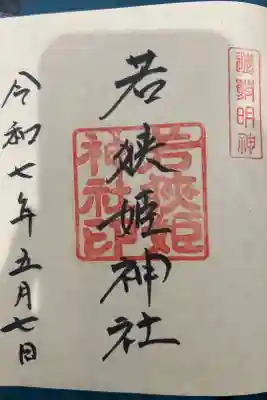 遠敷明神
若狭姫神社
若狭姫
神社印
令和七年五月七日